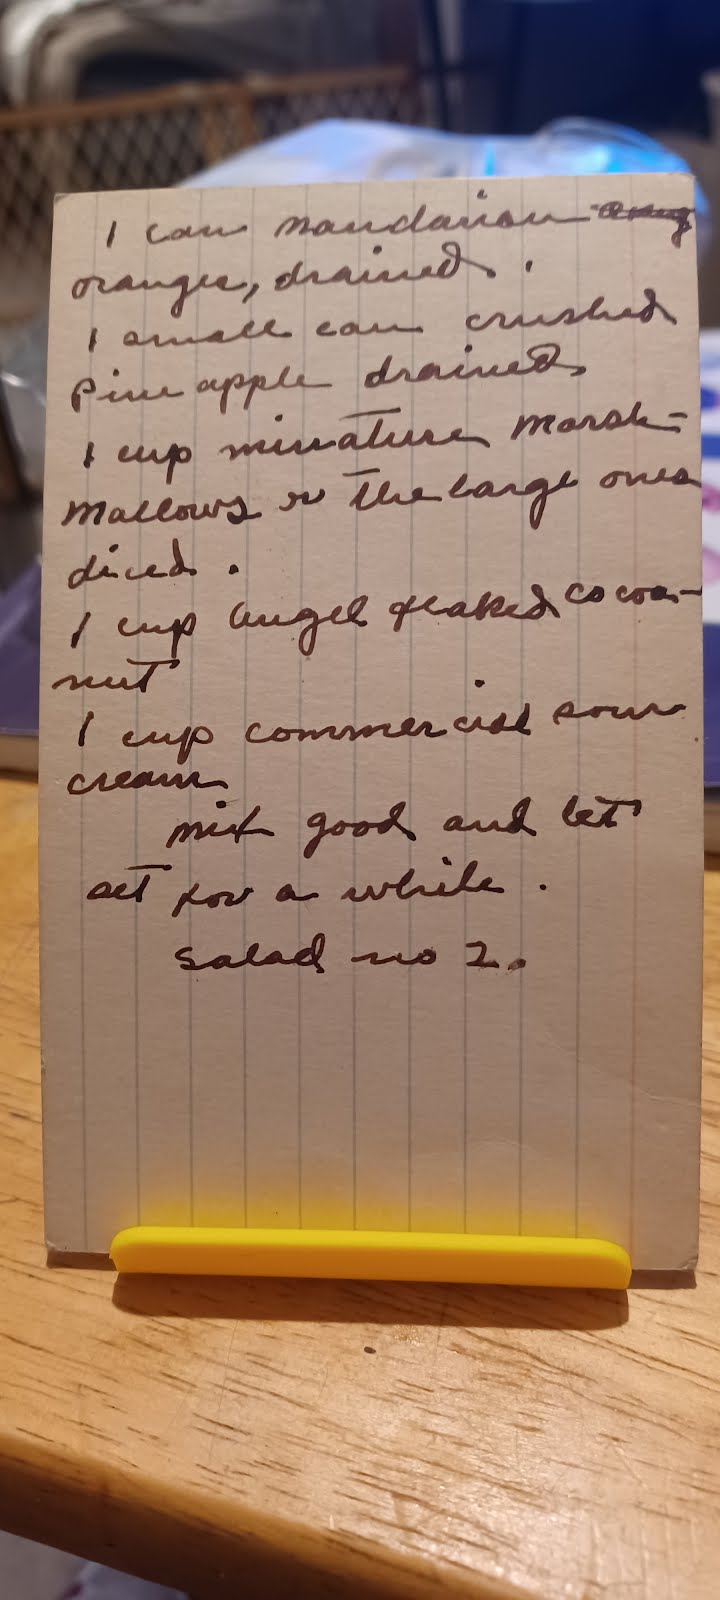 1 can mandarion
oranges, drained.
1 small can crushed
Pineapple drained
1 cup minature Marsh-
mallows or the large ones
diced.
1 cup angel flaked cocoa-
nut
1 cup commercial sour
cream
mix good and let
set for a while.
Salad no 2.